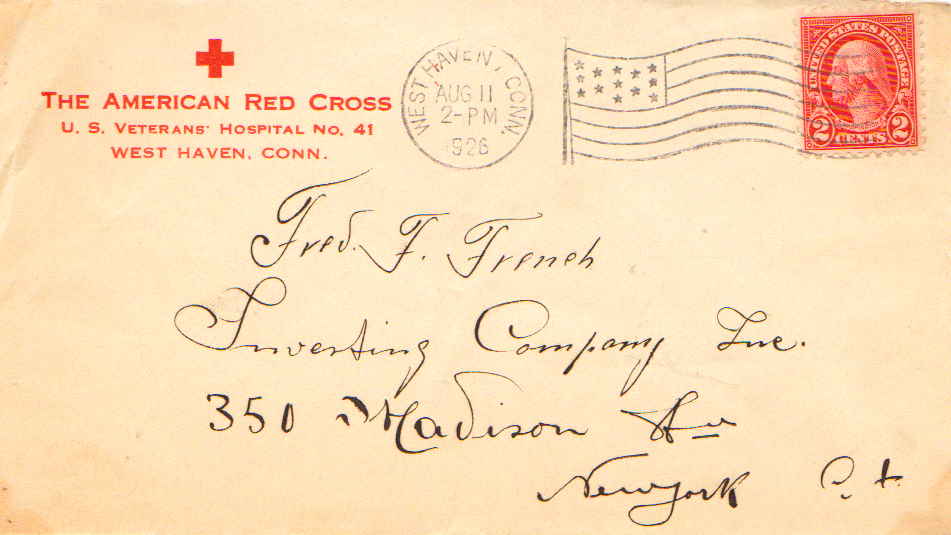 THE AMERICAN RED CROSS
U. S. VETERANS' HOSPITAL NO. 41
WEST HAVEN, CONN.
WEST HAVEN, CONN.
AUG 11
2-PM
1926
UNITED STATES POSTAGE
2 CENTS 2
Fred. F. French
Investing Company Inc.
350 Madison Av
New york